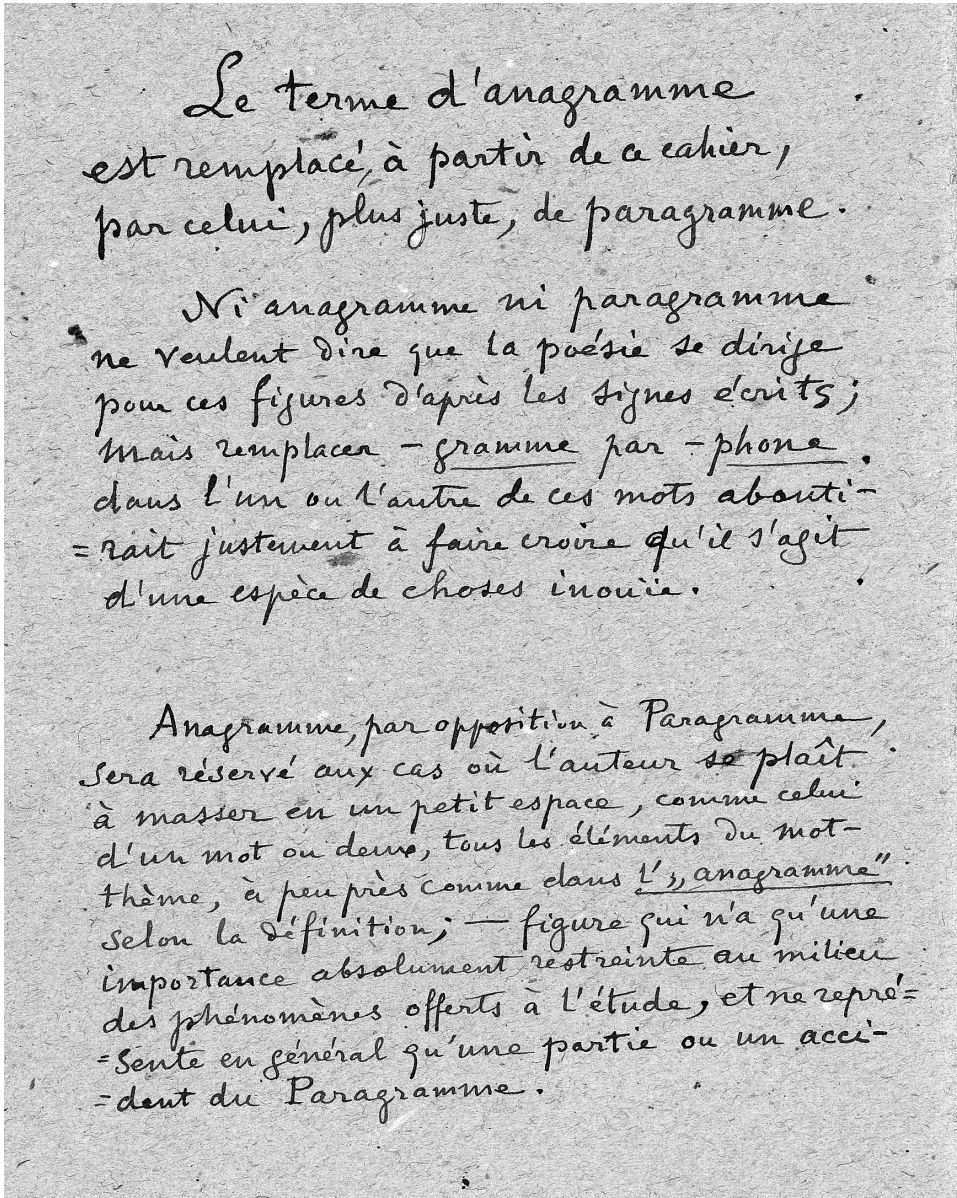 Le terme d'anagramme
est remplacé, à partir de ce cahier,
par celui, plus juste, de paragramme.
Ni anagramme ni paragramme
ne veulent dire que la poésie se dirige
pour ces figures d'après les signes écrits;
mais remplacer -gramme par -phone
dans l'un ou l'autre de ces mots abouti-
=rait justement à faire croire qu'il s'agit
d'une espèce de choses inouïe.
Anagramme, par opposition à Paragramme,
sera réservé aux cas où l'auteur se plaît
à masser en un petit espace, comme celui
d'un mot ou deux, tous les éléments du mot-
thème, à peu près comme dans l'„anagramme"
selon la définition; — figure qui n'a qu'une
importance absolument restreinte au milieu
des phénomènes offerts à l'étude, et ne repré=
=sente en général qu'une partie ou un acci-
-dent du Paragramme.